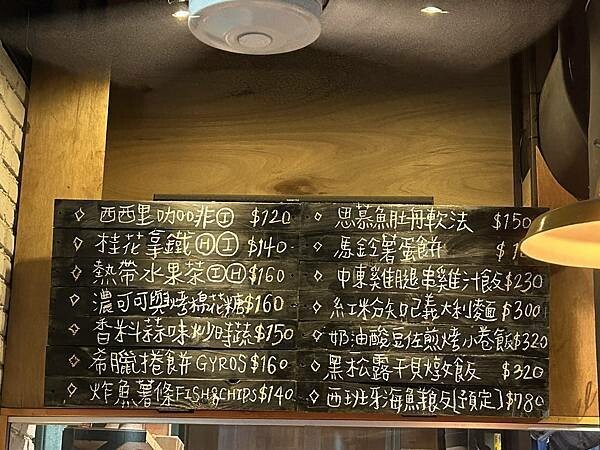 西西里咖啡Ⓘ $120
桂花拿鐵ⒽⒾ $140
熱帶水果茶ⒾⒽ$160
濃可可與烤棉花糖$160
香料蒜味炒時蔬$150
希臘捲餅GYROS $160
炸魚薯條FISH&CHIPS$140
思慕魚肚舟軟法 $150
馬鈴薯蛋餅 $
中東雞腿串雞汁飯$230
紅粉尖叫義大利麵$300
奶油酸豆佐煎烤小卷飯$320
黑松露干貝燉飯 $320
西班牙海鮮飯[預定]$780